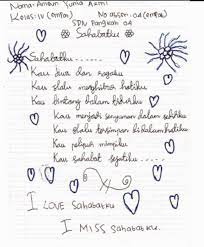 Nama: Amban Yuma Azmi
Kelas: IV (empat) No absen: 04 (empat)
SDN Pangkah 04
Sahabatku
Sahabatku......
Kau jiwa dan ragaku
Kau slalu menghibur hatiku
Kau bintang dalam hidupku
Kau menjadi senyuman dalam sedihku
Kau slalu tersimpan di dalam hatiku
Kau pelipur
Kau sahabat sejatiku.....
I LOVE Sahabatku
I MISS Sahabatku.